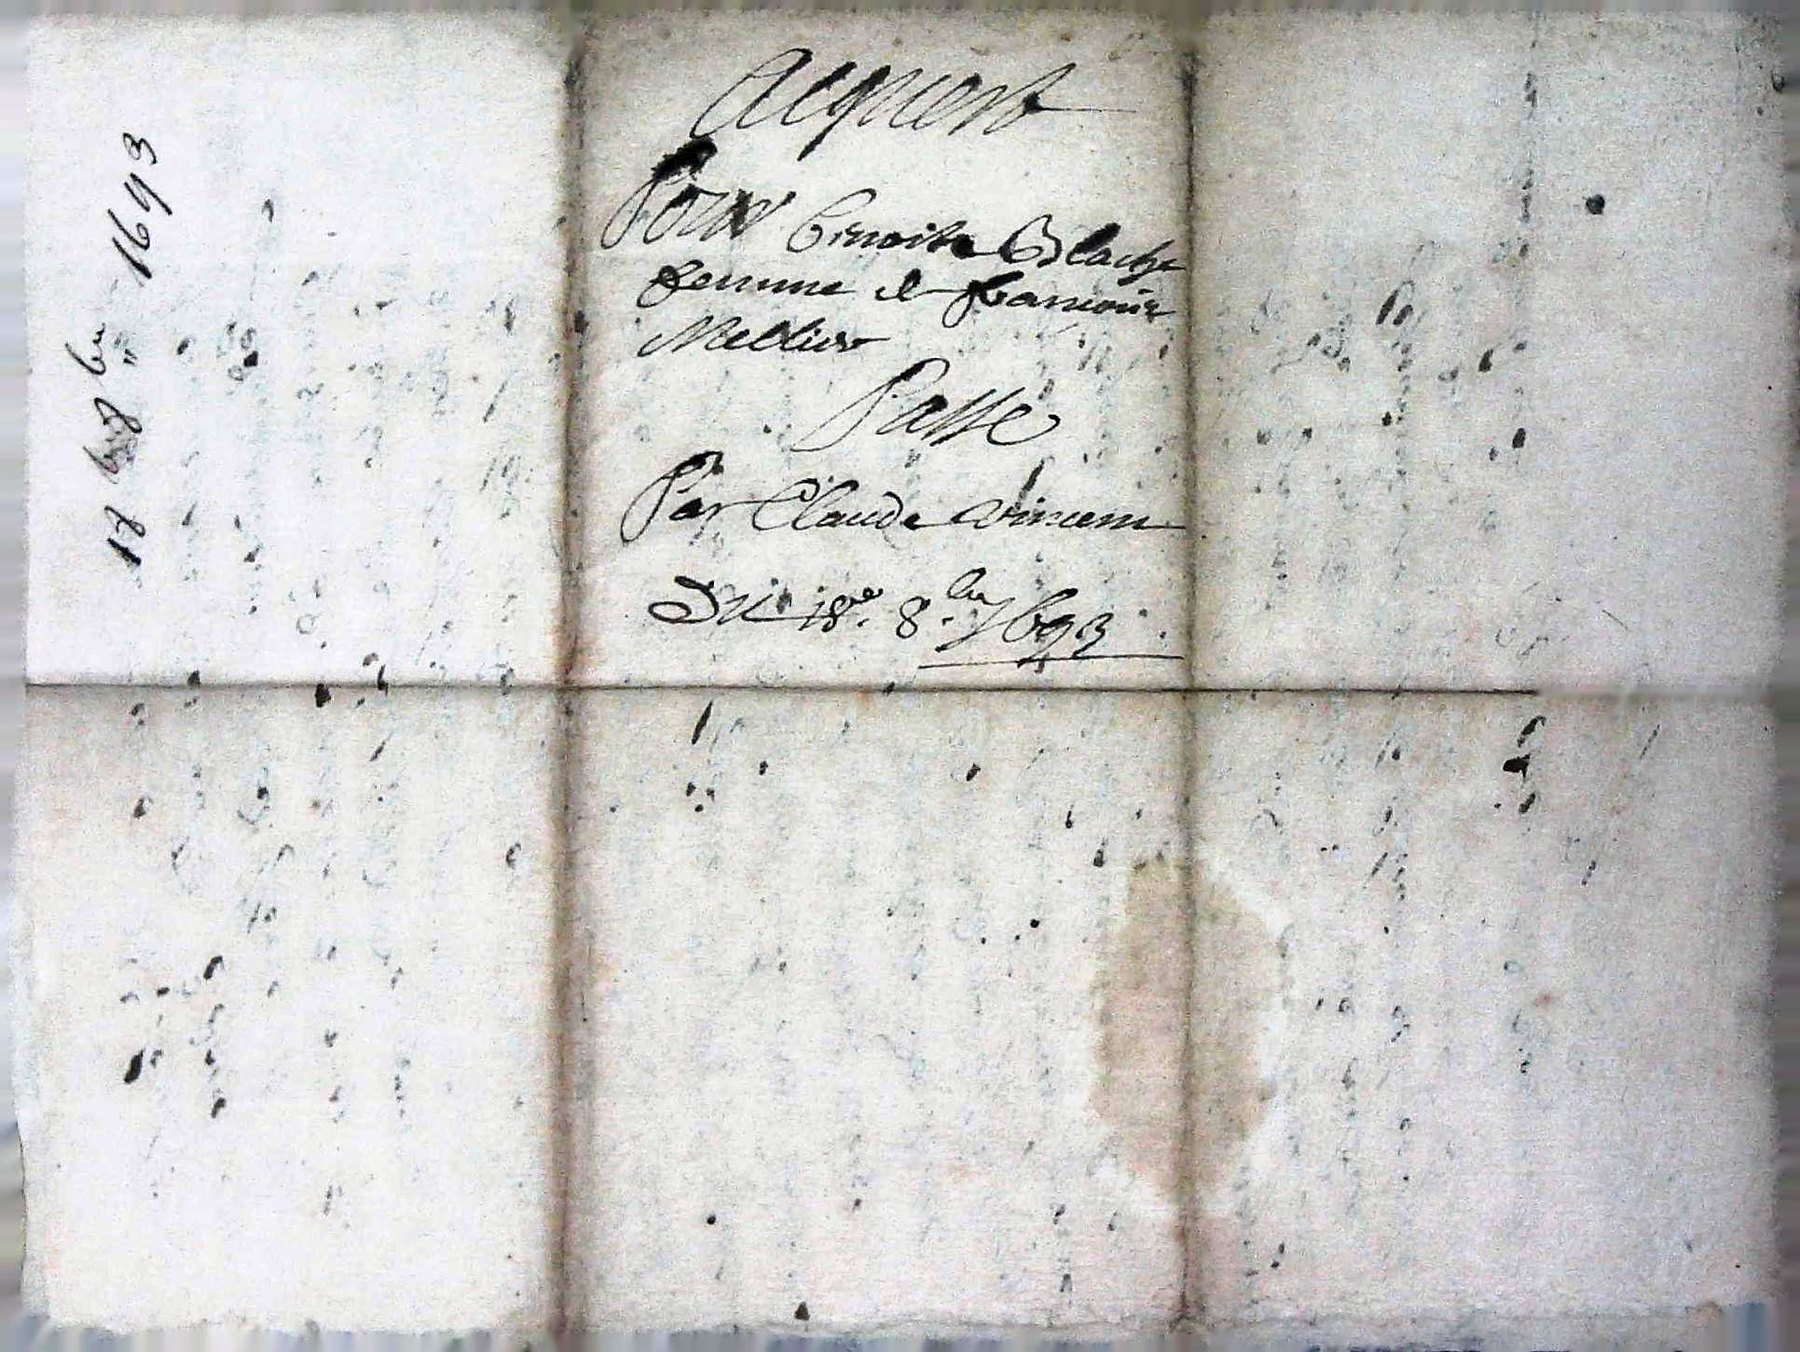 Acquest
Pour Benoite Blache
femme de francois
Mellier
Passé
Par Claude vincent
Du 18e. 8.bre 1693
18 8bre 1693